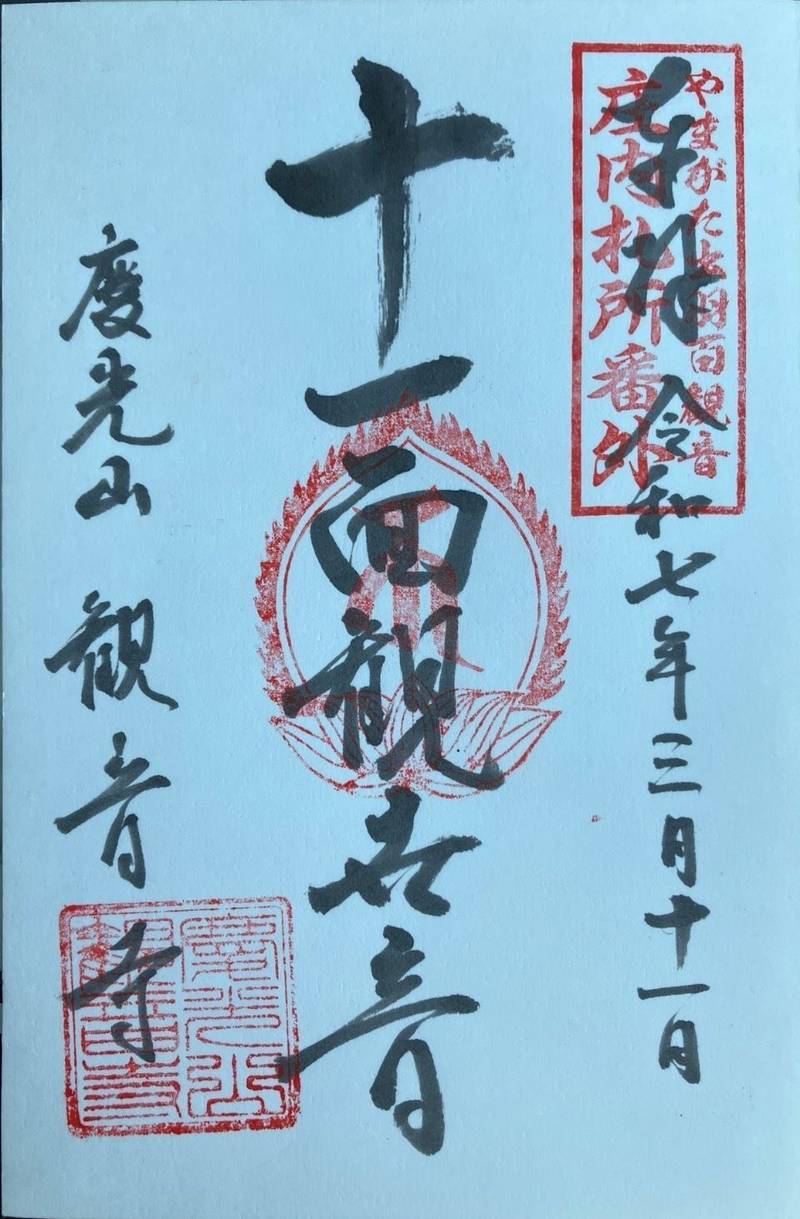 やまがた出羽百観音
庄内札所番外
奉拝 令和七年三月十一日
十一面観世音
慶光山 観音寺